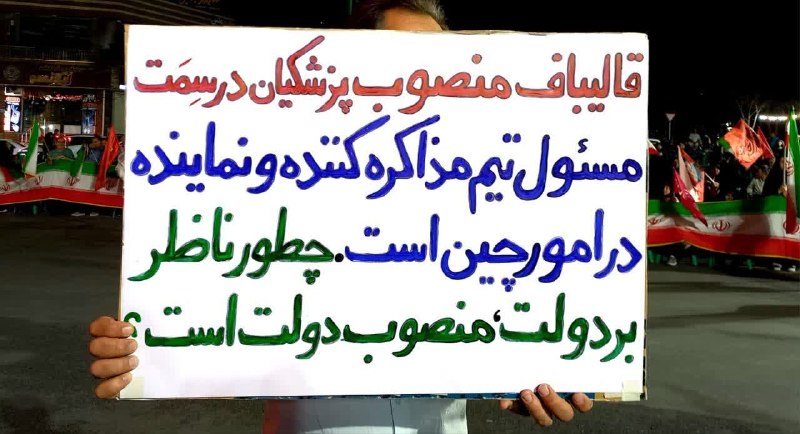 قالیباف منصوب پزشکیان در سِمَت
مسئول تیم مذاکره کننده و نماینده
در امور چین است. چطور ناظر
بر دولت، منصوب دولت است؟